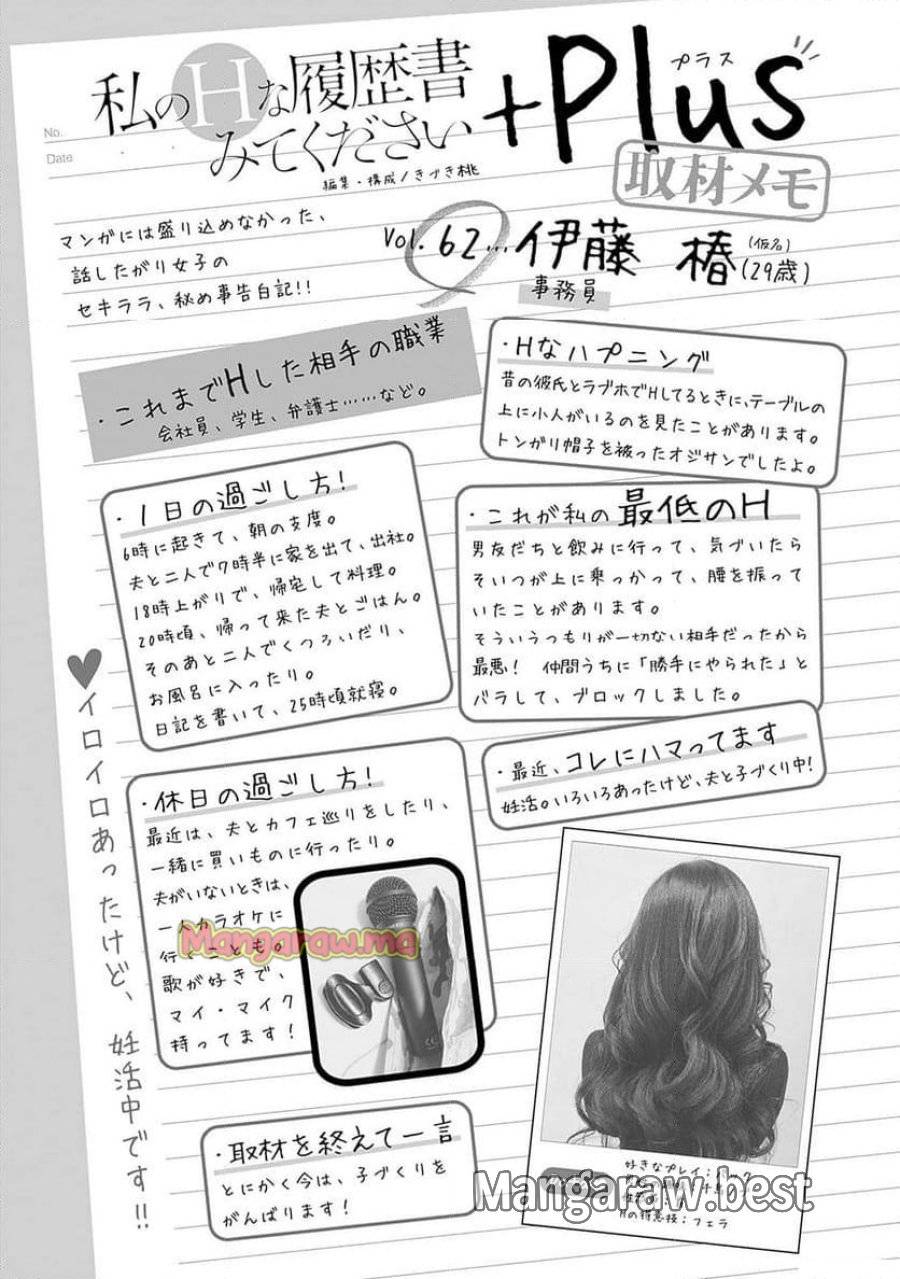 私のHな履歴書
みてください
+Plus
プラス
No.
Date
編集・構成/きづき桃
取材メモ
マンガには盛り込めなかった、
話したがり女子の
セキララ、秘め事告白記!!
Vol.62…伊藤 椿(仮名)(29歳)
事務員
・これまでHした相手の職業
会社員、学生、弁護士……など。
・Hなハプニング
昔の彼氏とラブホでHしてるときに、テーブルの
上に小人がいるのを見たことがあります。
トンガリ帽子を被ったオジサンでしたよ。
・1日の過ごし方!
6時に起きて、朝の支度。
夫と二人で7時半に家を出て、出社。
18時上がりで、帰宅して料理。
20時頃、帰って来た夫とごはん。
そのあと二人でくつろいだり、
お風呂に入ったり。
日記を書いて、25時頃就寝。
・これが私の最低のH
男友だちと飲みに行って、気づいたら
そいつが上に乗っかって、腰を振って
いたことがあります。
そういうつもりが一切ない相手だったから
最悪! 仲間うちに「勝手にやられた」と
バラして、ブロックしました。
・最近、コレにハマってます
妊活。いろいろあったけど、夫と子づくり中!
♥イロイロあったけど、妊活中です!!
・休日の過ごし方!
最近は、夫とカフェ巡りをしたり、
一緒に買いものに行ったり。
夫がいないときは、
一人カラオケに
行くことも。
歌が好きで、
マイ・マイク
持ってます!
Mangaraw.ma
・取材を終えて一言
とにかく今は、子づくりを
がんばります!
好きなプレイ:バック
Hの得意技:フェラ
Mangaraw.best